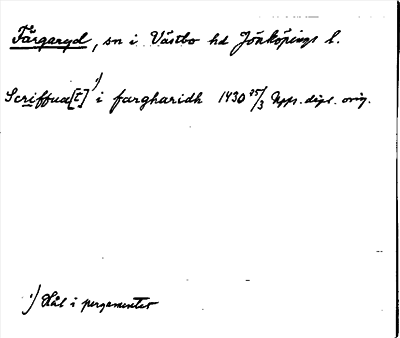 Färgaryd, sn i Västbo hd Jönköpings l.
Scriffua[t] 1) i fargharidh 1430 25/3 Upps. dipl. orig.
1) Hål i pergamentet